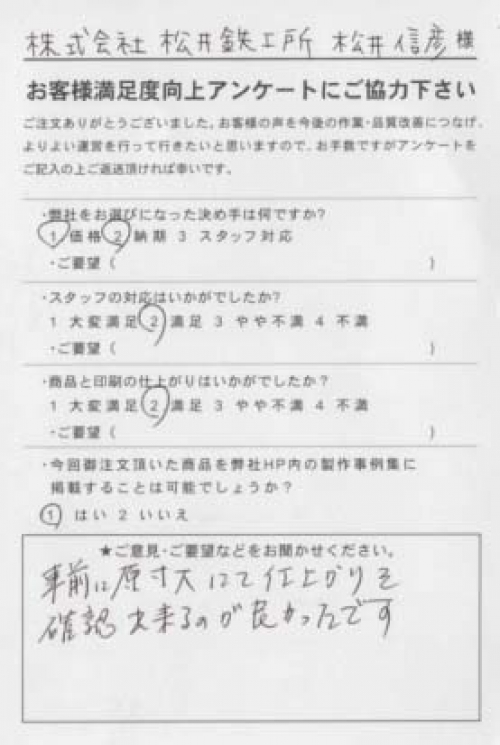 株式会社 松井鉄工所 松井信彦 様
お客様満足度向上アンケートにご協力下さい
ご注文ありがとうございました。お客様の声を今後の作業・品質改善につなげ、
よりよい運営を行って行きたいと思いますので、お手数ですがアンケートを
ご記入の上ご返送頂ければ幸いです。
・弊社をお選びになった決め手は何ですか?
1 価格 2 納期 3 スタッフ対応
・ご要望 ( )
・スタッフの対応はいかがでしたか?
1 大変満足 2 満足 3 やや不満 4 不満
・ご要望 ( )
・商品と印刷の仕上がりはいかがでしたか?
1 大変満足 2 満足 3 やや不満 4 不満
・ご要望 ( )
・今回御注文頂いた商品を弊社HP内の製作事例集に
掲載することは可能でしょうか?
1 はい 2 いいえ
★ご意見・ご要望などをお聞かせください。
事前に原寸大にて仕上がりを
確認出来るのが良かったです